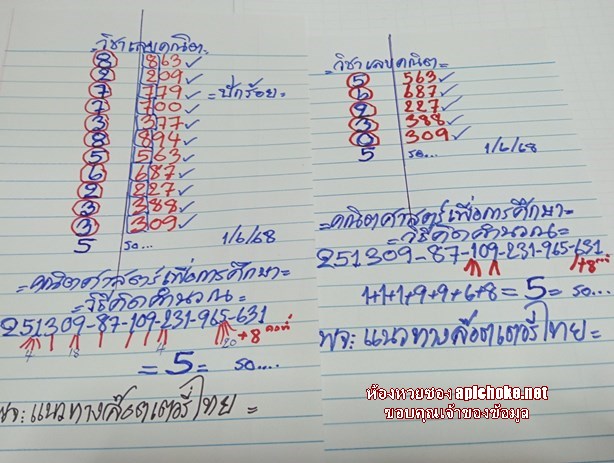 = วิชาเลขคณิต =
8 863 ✓
2 209 ✓
7 779 ✓ = ปักร้อย =
7 700 ✓
3 377 ✓
8 894 ✓
5 563 ✓
6 687 ✓
2 227 ✓
3 388 ✓
3 309 ✓
5 รอ... 1/6/68
= คณิตศาสตร์เพื่อการศึกษา =
= วิธีคิดคำนวณ =
251309-87-109-231-965-631
+8 คงที่
= 5 = รอ....
เพจ: แนวทางล๊อตเตอรี่ไทย =
= วิชาเลขคณิต =
5 563 ✓
6 687 ✓
2 227 ✓
3 388 ✓
0 309 ✓
5 รอ... 1/6/68
= คณิตศาสตร์เพื่อการศึกษา =
= วิธีคิดคำนวณ =
251309-87-109-231-965-631
+8
1+1+1+9+9+6+8 = 5 = รอ...
เพจ: แนวทางล๊อตเตอรี่ไทย =
ห้องหวยซอง apichoke.net
ขอบคุณเจ้าของข้อมูล